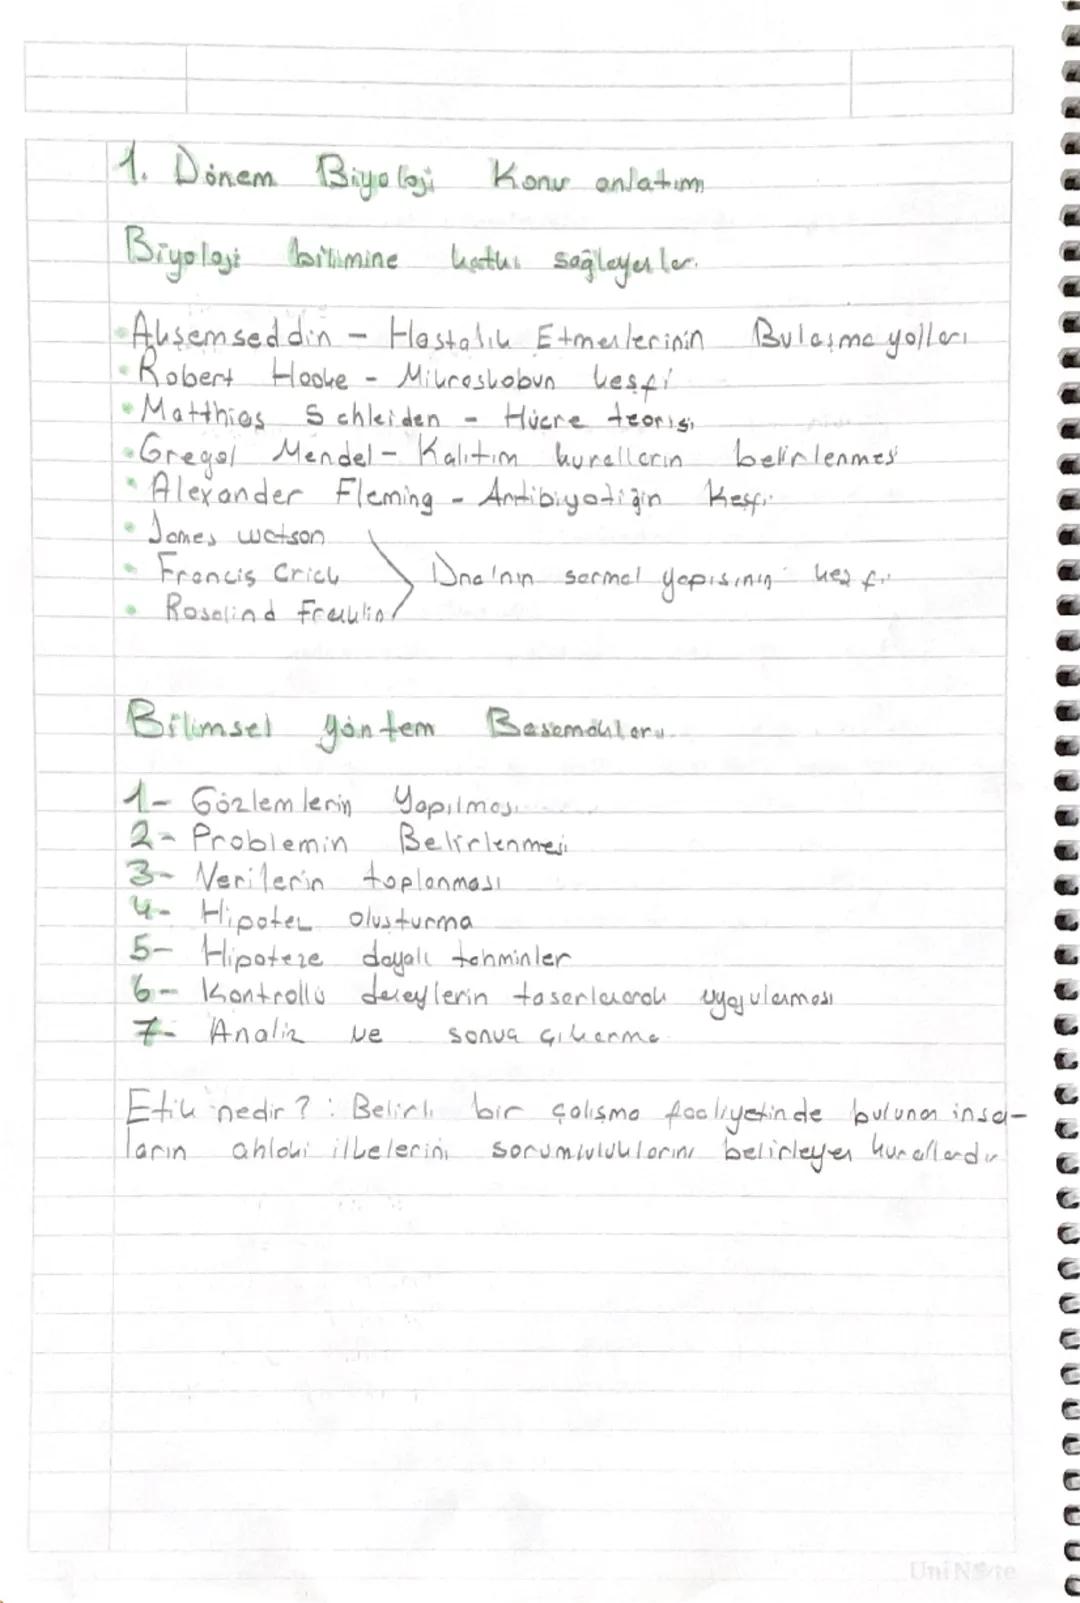 1. Dönem Biyoloji Konu anlatımı
Biyoloji bilimine katkı sağlayanlar.
Akşemseddin - Hastalık Etmenlerinin Bulaşma yolları
Robert Hooke - Mikroskobun keşfi
Matthias Schleiden - Hücre teorisi
Gregol Mendel - Kalıtım kuralların belirlenmesi
Alexander Fleming - Antibiyotiğin Keşfi
James watson
Francis Crick Dna'nın sarmal yapısının keşfi
Rosalind Franklin
Bilimsel yöntem Basamakları
1- Gözlemlerin Yapılması
2- Problemin Belirlenmesi
3- Verilerin toplanması
4- Hipotez oluşturma
5- Hipoteze dayalı tahminler
6- Kontrollü deneylerin tasarlanarak uygulanması
7- Analiz ve sonuç çıkarma
Etik nedir? : Belirli bir çalışma faaliyetinde bulunan insa-
ların ahlaki ilkelerini sorumluluklarını belirleyen kurallardır
UniNote